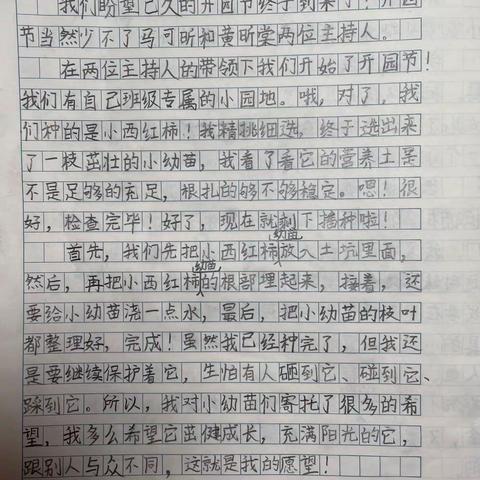 我们盼望已久的开园节终于到来了!开园
节当然少不了马可昕和黄昕棠两位主持人。
在两位主持人的带领下我们开始了开园节!
我们有自己班级专属的小园地。哦,对了,我
们种的是小西红柿!我精挑细选,终于选出来
了一枝茁壮的小幼苗,我看了看它的营养土是
不是足够的充足,根扎的够不够稳定。嗯!很
好,检查完毕!好了,现在就剩下播种啦!
首先,我们先把小西红柿幼苗放入土坑里面,
然后,再把小西红柿幼苗的根部埋起来,接着,还
要给小幼苗浇一点水,最后,把小幼苗的枝叶
都整理好,完成!虽然我已经种完了,但我还
是要继续保护着它,生怕有人砸到它、碰到它、
踩到它。所以,我对小幼苗们寄托了很多的希
望,我多么希望它茁健成长,充满阳光的它,
跟别人与众不同,这就是我的愿望!